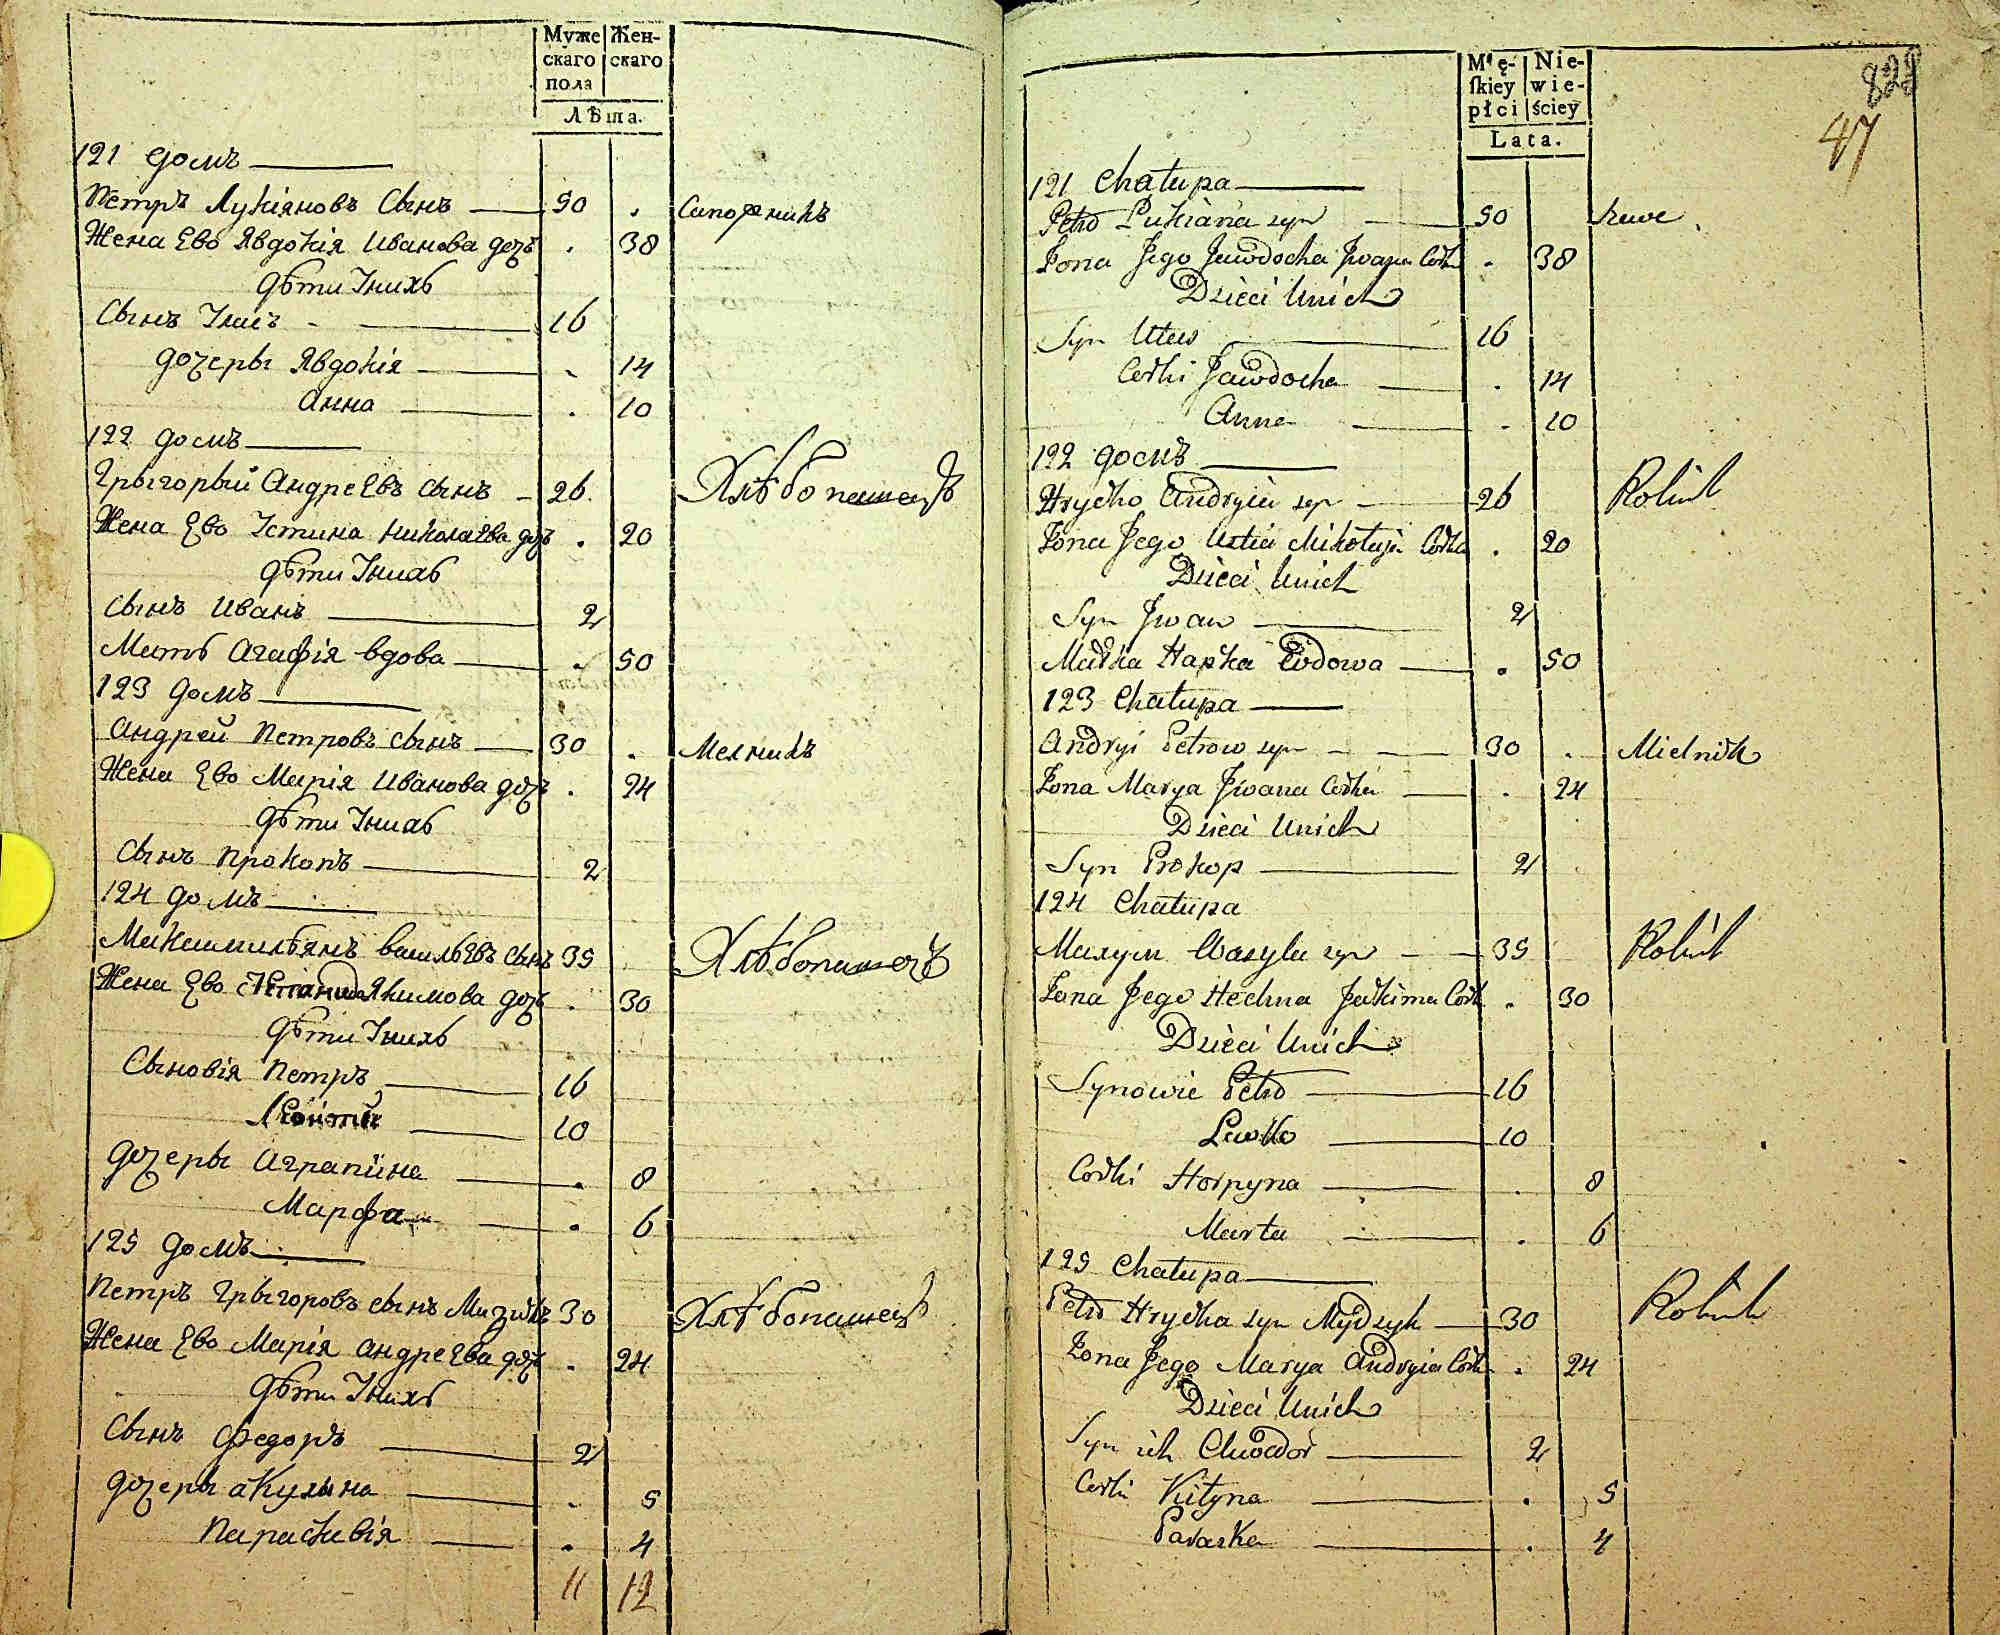 Муже
скаго
пола
Жен-
скаго
Лѣта.
121 домъ
Петръ Лукіяновъ Сынъ 50 . Сапожникъ
Жена Ево Явдокія Иванова дочь . 38
Дѣти Унихъ
Сынъ 16
дочеры Явдокія . 14
Анна . 10
122 домъ
Грыгорый Андреевъ сынъ 26. Хлѣбопашецъ
Жена Ево Устина Николаева дочь . 20
Дѣти Унихъ
Сынъ Иванъ 2
Мать Агафія вдова . 50
123 домъ
Андрей Петровъ сынъ 30 . Мелникъ
Жена Ево Марія Иванова дочь . 24
Дѣти Унихъ
Сынъ Прокопъ 2
124 домъ
Макшимильянъ Васильевъ сынъ 35 Хлѣбопашецъ
Жена Ево Якимова дочь . 30
Дѣти Унихъ
Сыновія Петръ 16
10
дочеры Аграпина . 8
Марфа . 6
125 домъ
Петръ Грыгоровъ сынъ 30 Хлѣбопашецъ
Жена Ево Марія Андреева дочь . 24
Дѣти Унихъ
Сынъ Федоръ 2
дочеры Акулина . 5
Параскивія . 4
11 12
Męs-
kiey
płci
Nie-
wie-
ściey
Lata.
828
47
121 Chałupa
Petro Łukiana syn 50 Szwec
Żona Jego Jawdocha Jwana Córka . 38
Dzieci Unich
Syn 16
Córki Jawdocha . 14
Anna . 10
122 домъ
Hryćko Andryia syn 26 Rolnik
Żona Jego Ustia Mikołaja Córka . 20
Dzieci Unich
Syn Jwan 2
Matka Hapka Wdowa . 50
123 Chałupa
Andryi Petrow syn 30 . Mielnik
Żona Marya Jwana Córka . 24
Dzieci Unich
Syn Prokop 2
124 Chałupa
Maxym Wasyla syn 35 Rolnik
Żona Jego Hechna Jakima Córka . 30
Dzieci Unich
Synowie Petro 16
Lewko 10
Córki Horpyna . 8
Marta . 6
125 Chałupa
Petro Hryćka syn Mydzyk 30 Rolnik
Żona Jego Marya Andryia Córka . 24
Dzieci Unich
Syn ich Chwedor 2
Córki Kiłyna . 5
Paraska . 4